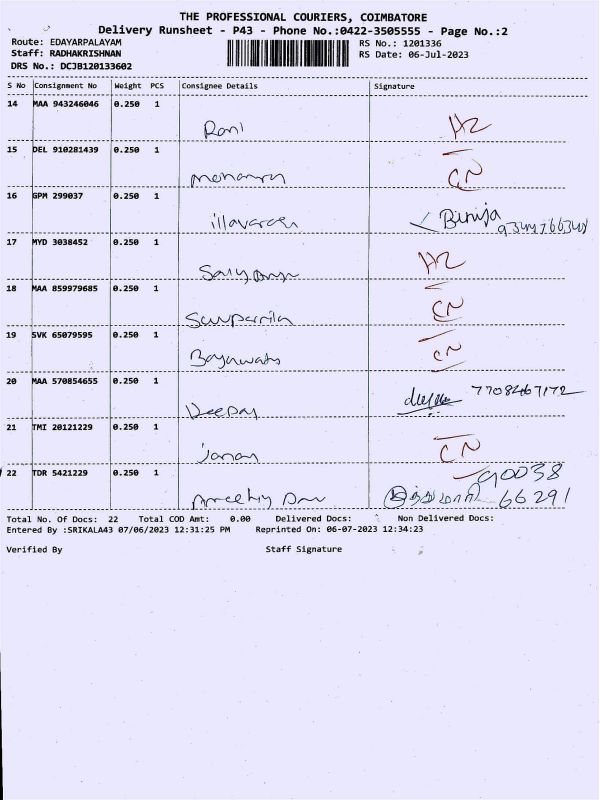 THE PROFESSIONAL COURIERS, COIMBATORE
Delivery Runsheet - P43 - Phone No.:0422-3505555 - Page No.:2
Route: EDAYARPALAYAM RS No.: 1201336
Staff: RADHAKRISHNAN RS Date: 06-Jul-2023
DRS No.: DCJB120133602
S No Consignment No Weight PCS Consignee Details Signature
14 MAA 943246046 0.250 1
Rani
15 DEL 910281439 0.250 1
CN
16 GPM 299037 0.250 1
Binija
17 MYD 3038452 0.250 1
18 MAA 859979685 0.250 1
CN
19 SVK 65079595 0.250 1
CN
20 MAA 570854655 0.250 1
Deepay
21 TMI 20121229 0.250 1
CN
22 TDR 5421229 0.250 1 90038
66291
Total No. Of Docs: 22 Total COD Amt: 0.00 Delivered Docs: Non Delivered Docs:
Entered By :SRIKALA43 07/06/2023 12:31:25 PM Reprinted On: 06-07-2023 12:34:23
Verified By Staff Signature